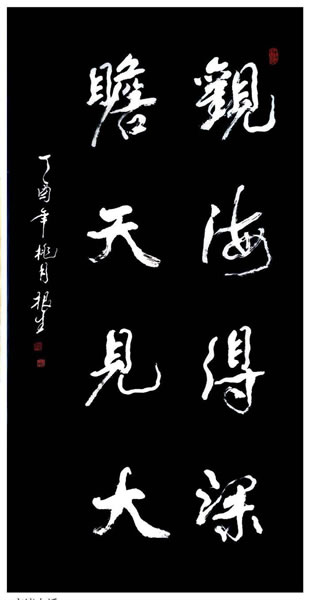 觀海得深
瞻天見大
丁酉年桃月根生